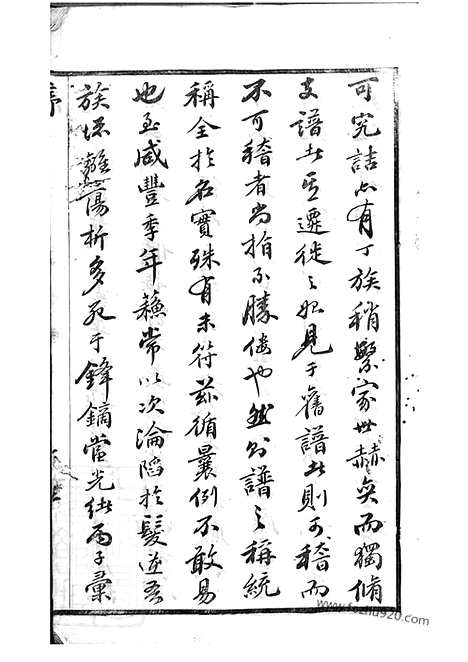 可究詰亦有丁族稍繁家世赫奕而獨脩
支譜者其遷徙之始見于舊譜者則可稽而
不可稽者尚指不勝僂也然則譜之稱統
稱全於名實殊有未符茲循曩例不敢易
也至咸豐季年蘇常以次淪陷於髮逆吾
族流離蕩析多死于鋒鏑當光緒丙子彙
序
www.fozhu920.com